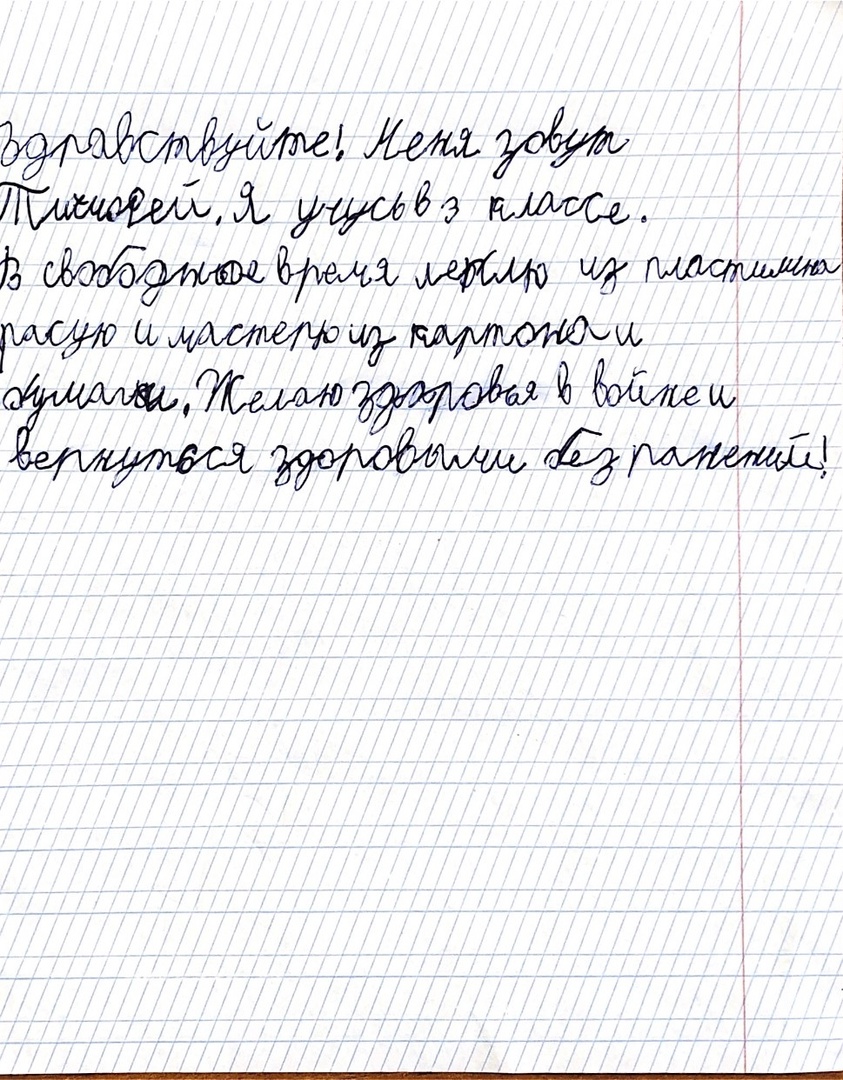 Здравствуйте! Меня зовут
Тимофей. Я учусь в 3 классе.
В свободное время леплю из пластилина
расую и мастерю из картона и
бумаги. Желаю здоровья в войне и
вернуться здоровыми без ранений!